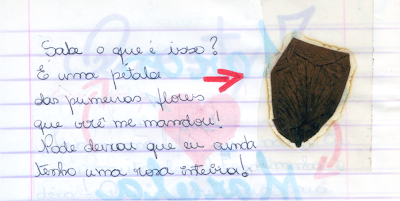 Sabe o que é isso?
É uma pétala
das primeiras flores
que você me mandou!
Pode deixar que eu ainda
tenho uma rosa inteira!